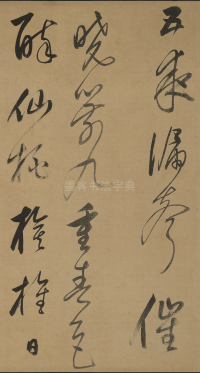 五夜漏聲催
曉箭九重春色
醉仙桃旌旗日